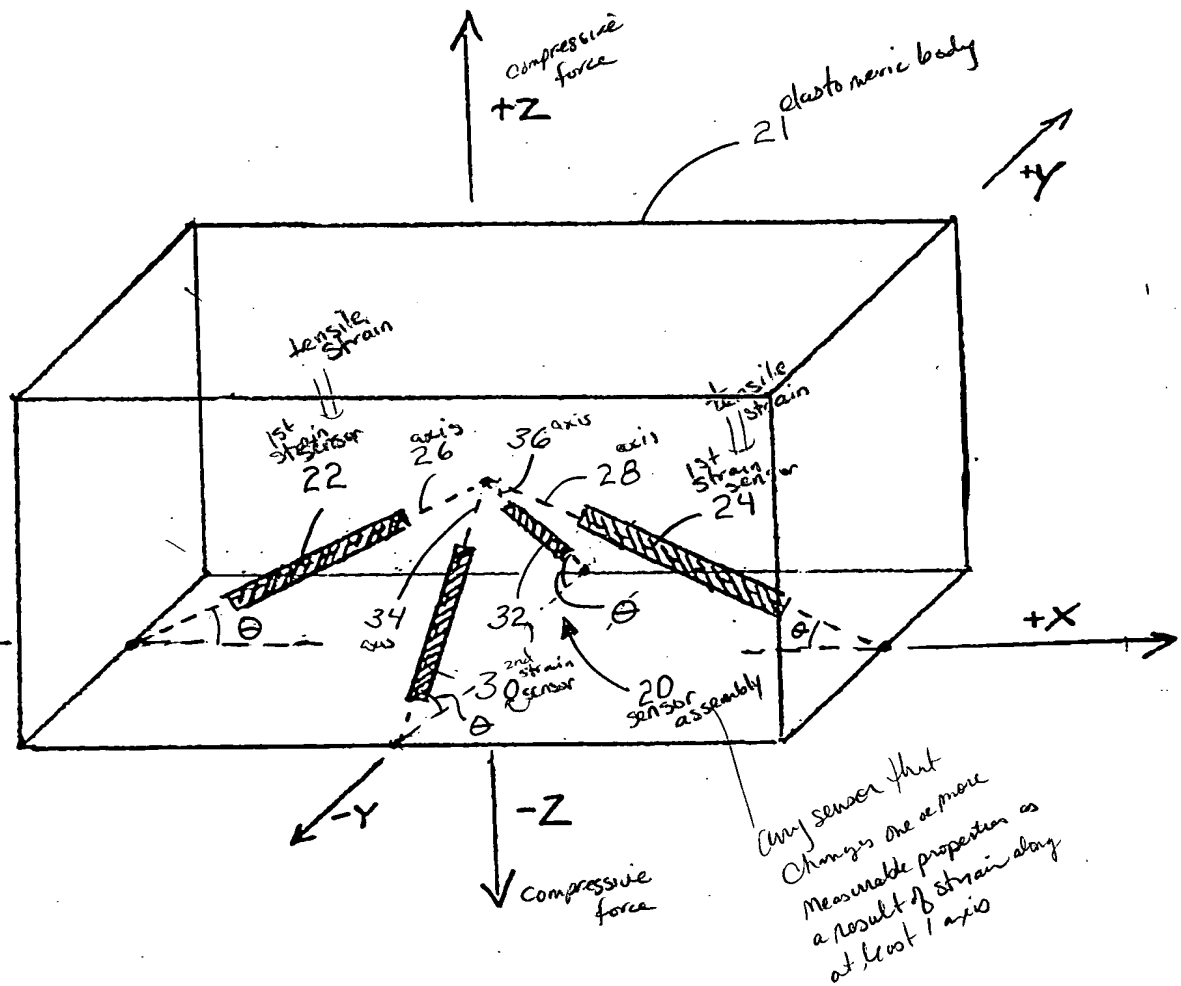 compressive
force
+Z
elastomeric body
21
+Y
tensile
strain
1st
strain
sensor
22
axis
26
36 axis
axis
28
tensile
strain
1st
strain
sensor
24
θ
34
axis
32
θ
θ
+X
30
2nd
strain
sensor
θ
20
sensor
assembly
-Y
-Z
compressive
force
any sensor that
changes one or more
measurable properties as
a result of strain along
at least 1 axis